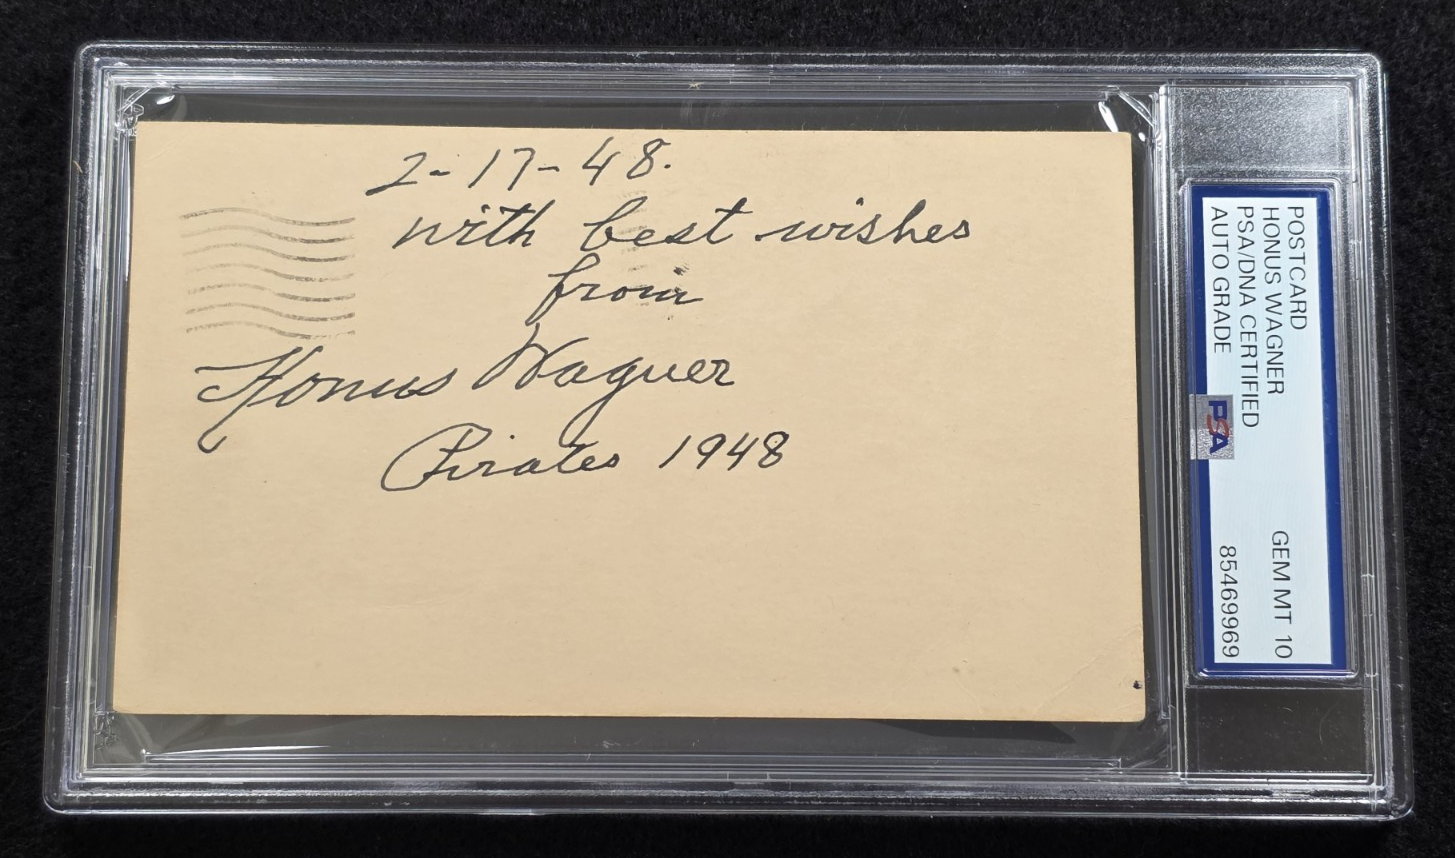 2-17-48.
with best wishes
from
Honus Wagner
Pirates 1948
POSTCARD
HONUS WAGNER
PSA/DNA CERTIFIED
AUTO GRADE
GEM MT 10
85469969
PSA